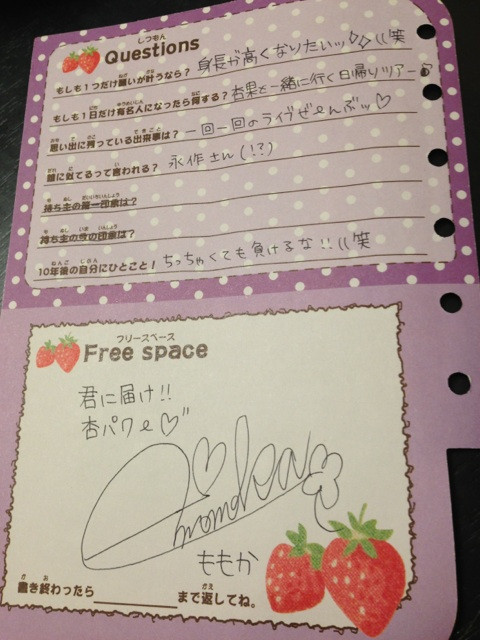 しつもん
Questions
もしも1つだけ願いが叶うなら？ 身長が高くなりたいッ◇◇((笑
もしも1日だけ有名人になったら何する？ 杏果と一緒に行く日帰りツアー♪
思い出に残っている出来事は？ 一回一回のライブぜーんぶッ♡
誰に似てるって言われる？ 永作さん(!?)
持ち主の第一印象は？
持ち主の今の印象は？
10年後の自分にひとこと！ ちっちゃくても負けるな!!((笑
フリースペース
Free space
君に届け!!
杏パワー♡
momoka
ももか
書き終わったら まで返してね。